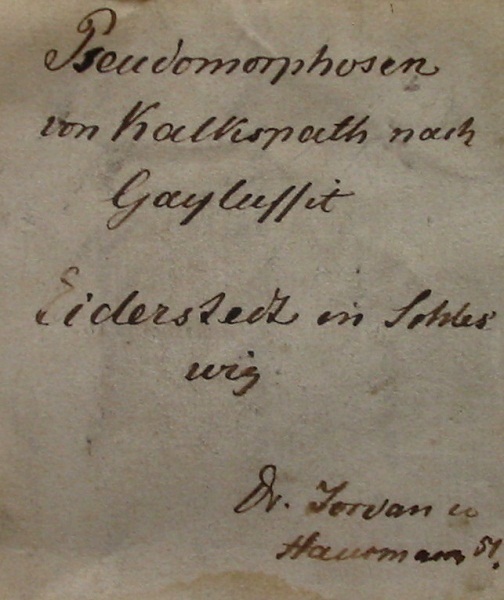 Pseudomorphosen
von Kalkspath nach
Gayluſſit
Eiderstedt in Schles
wig
Dr. Jordan u
Hausmann 51.